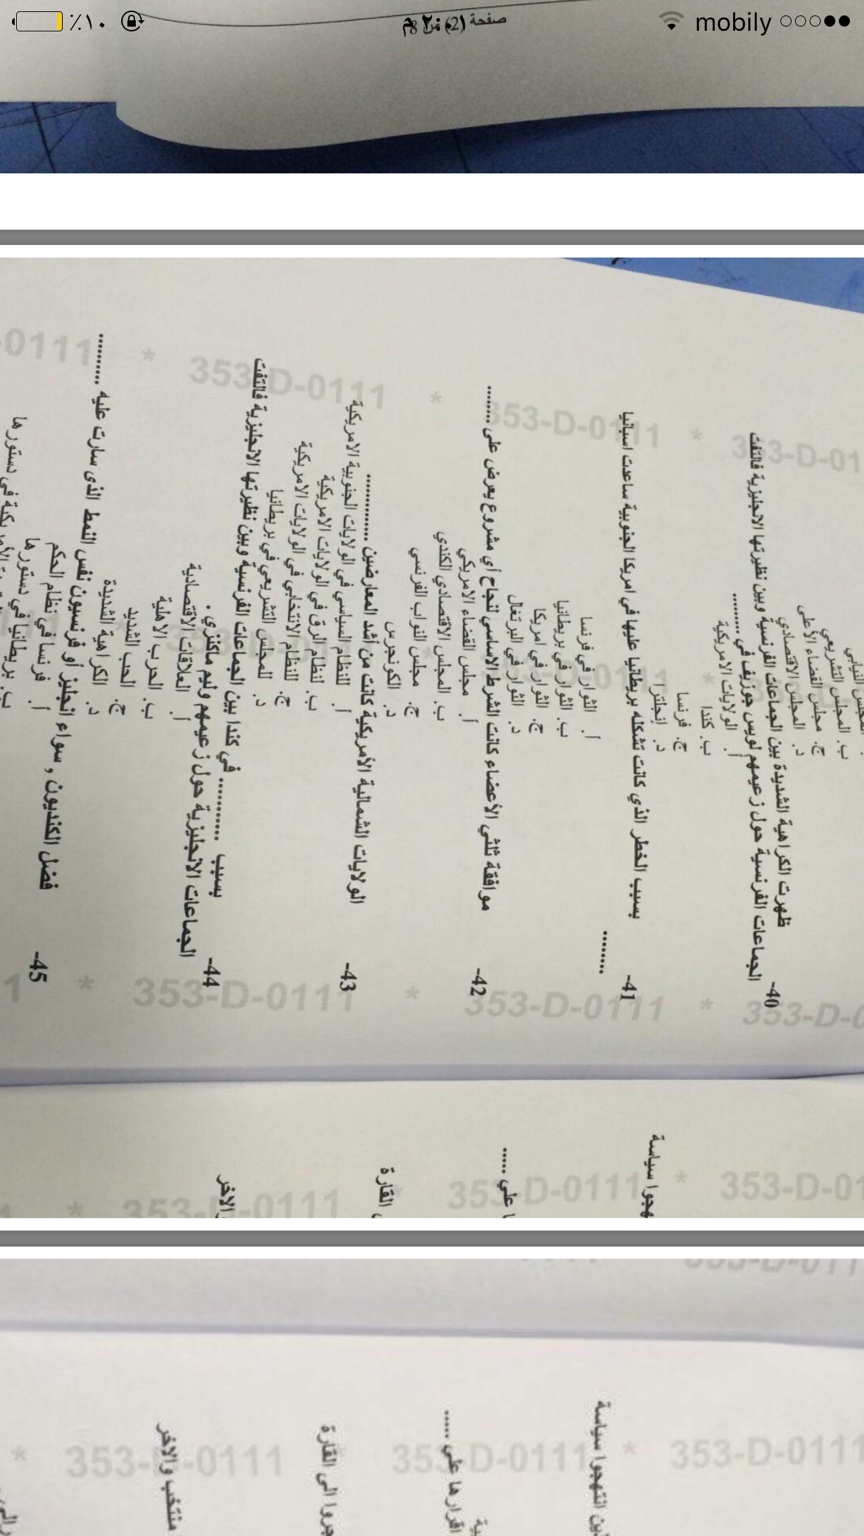 mobily
٪١٠
صفحة (2) من 8
353-D-0111 * 353-D-0111 * 353-D-01
المجلس النيابي
ب. المجلس التشريعي
ج. مجلس القضاء الأعلى
د. المجلس الاقتصادي
40- ظهرت الكراهية الشديدة بين الجماعات الفرنسية وبين نظيرتها الانجليزية فالتفت
الجماعات الفرنسية حول زعيمهم لويس جوزيف في .........
أ. الولايات الامريكية
ب. كندا
ج. فرنسا
د. إنجلترا
41- بسبب الخطر الذي كانت تشكله بريطانيا عليها في امريكا الجنوبية ساعدت اسبانيا
........
أ. الثوار في فرنسا
ب. الثوار في بريطانيا
ج. الثوار في امريكا
د. الثوار في البرتغال
42- موافقة ثلثي الأعضاء كانت الشرط الاساسي لنجاح أي مشروع يعرض على ........
أ. مجلس القضاء الامريكي
ب. المجلس الاقتصادي الكندي
ج. مجلس النواب الفرنسي
د. الكونجرس
43- الولايات الشمالية الأمريكية كانت من أشد المعارضين .............
أ. للنظام السياسي في الولايات الجنوبية الامريكية
ب. لنظام الرق في الولايات الامريكية
ج. للنظام الانتخابي في الولايات الامريكية
د. للمجلس التشريعي في بريطانيا
44- بسبب ........... في كندا بين الجماعات الفرنسية وبين نظيرتها الانجليزية فالتفت
الجماعات الانجليزية حول زعيمهم وليم ماكنزي .
أ. العلاقات الاقتصادية
ب. الحرب الاهلية
ج. الحب الشديد
د. الكراهية الشديدة
45- فضل الكنديون , سواء انجليز أو فرنسيون نفس النمط الذى سارت عليه ..........
أ. فرنسا في نظام الحكم
ب. بريطانيا في دستورها
353-D-0111 * 353-D-0111 * 353-D-0
هجوا سياسة
ا على ......
ى القارة
الاخر
353-D-0111 * 353-D-0111 * 353-D-01
ين انتهجوا سياسة
اقرارها على ......
جروا الى القارة
منتخب والاخر
353-D-0111 * 353-D-0111 * 353-D-0111